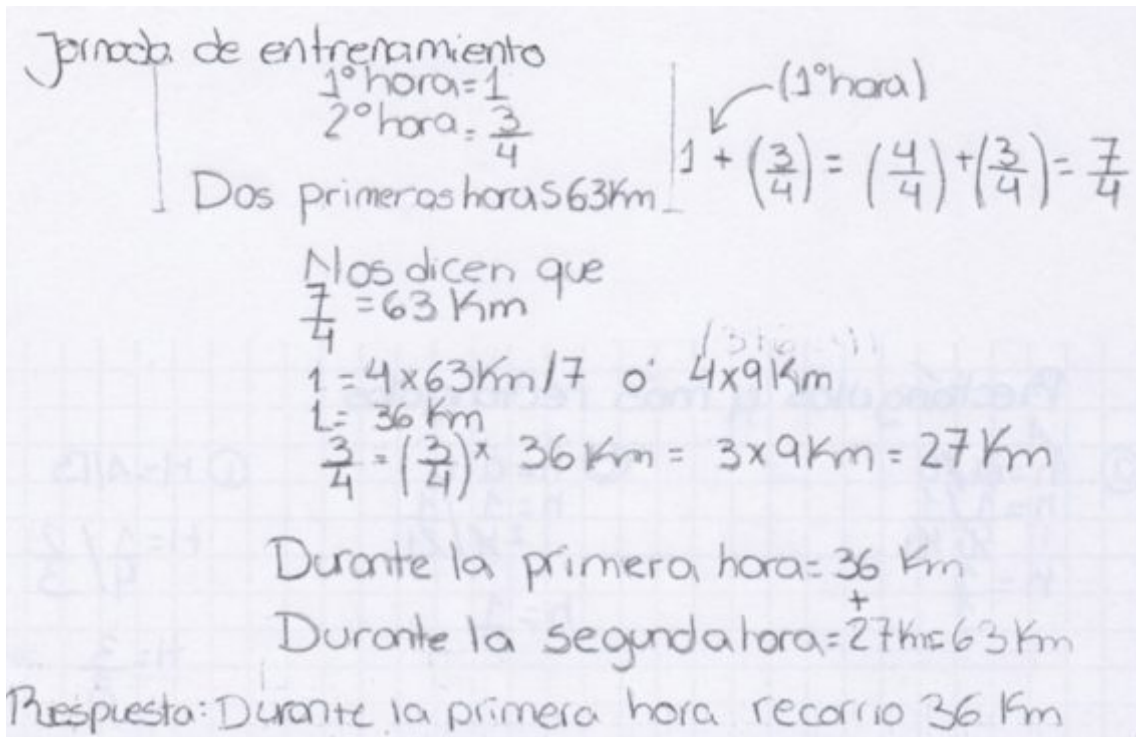 Jornada de entrenamiento
1º hora=1
2º hora=3/4
Dos primeras horas 63Km
(1ºhora)
1 + (3/4) = (4/4) + (3/4) = 7/4
Nos dicen que
7/4 = 63 Km
1 = 4x63Km/7 o' 4x9Km
1= 36 Km
3/4 = (3/4) x 36 Km = 3x9Km = 27 Km
Durante la primera hora= 36 Km
+
Durante la segunda hora=27Km=63Km
Respuesta: Durante la primera hora recorrio 36 Km